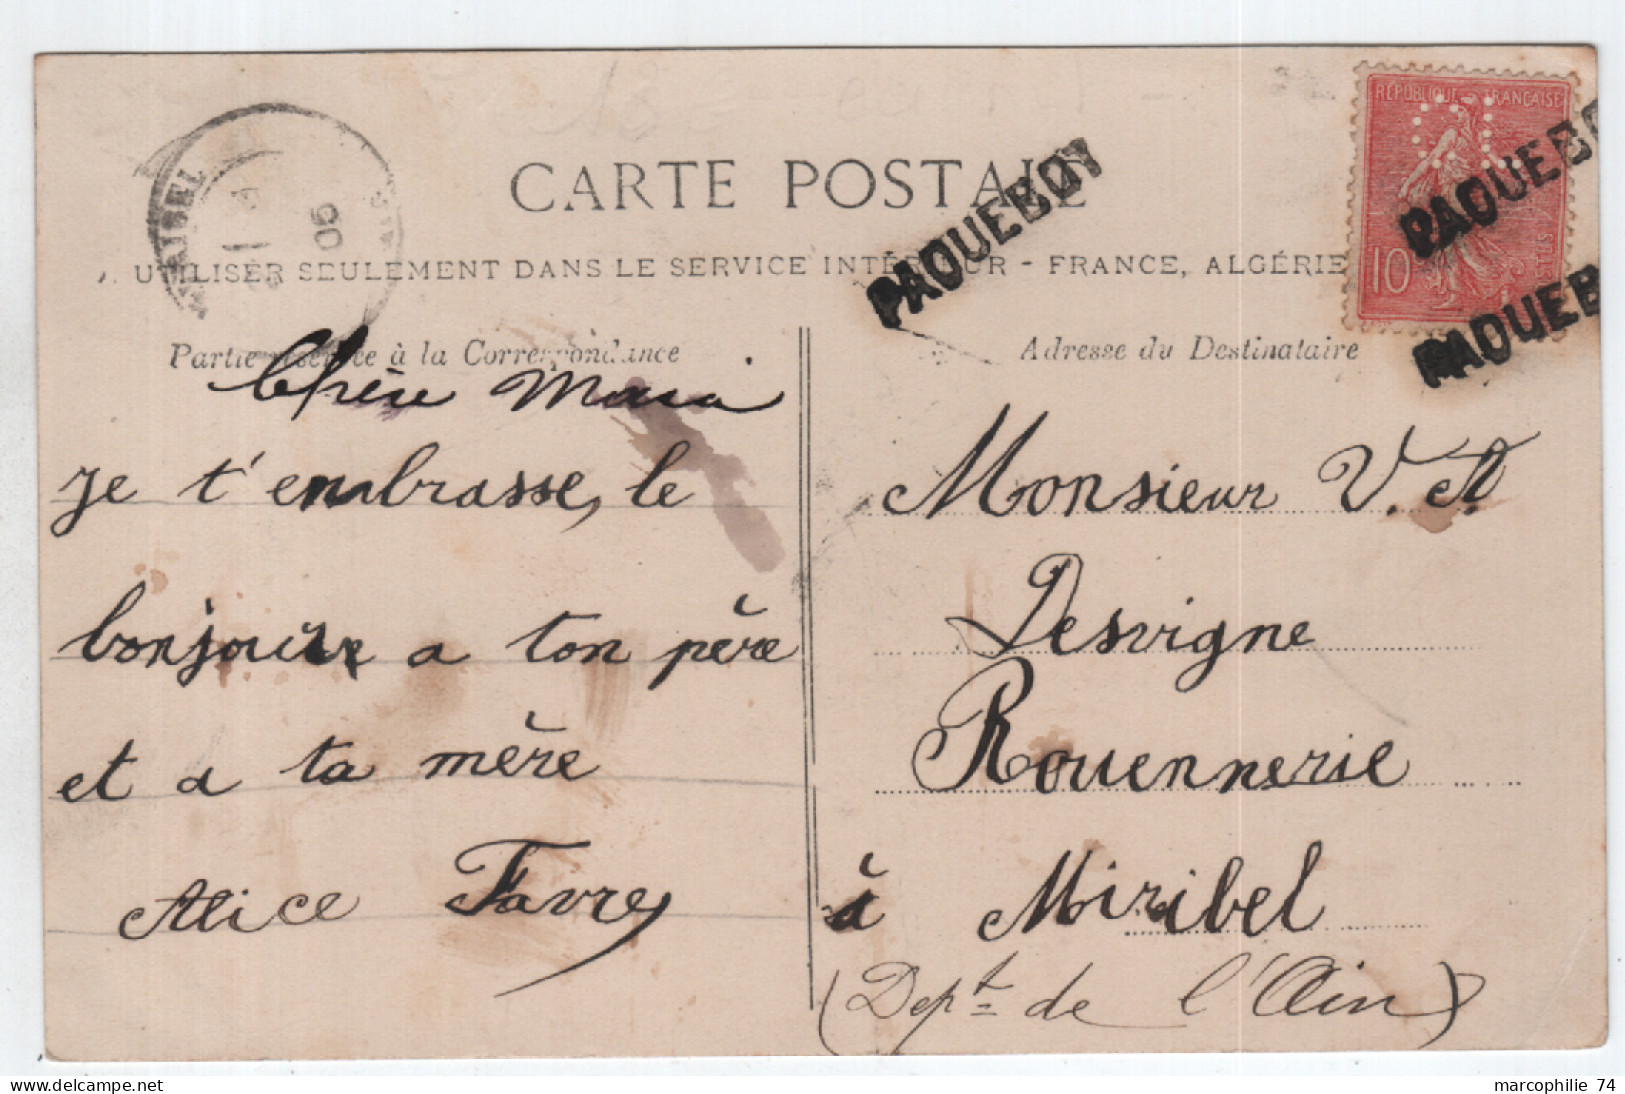 CARTE POSTALE
A UTILISER SEULEMENT DANS LE SERVICE INTÉRIEUR - FRANCE, ALGÉRIE
RÉPUBLIQUE FRANÇAISE
10
POSTES
PAQUEBOT
PAQUEBO
PAQUEB
MIRIBEL
05
Partie réservée à la Correspondance
Chère Maria
je t'embrasse, le
bonjour a ton père
et a ta mère
Alice Favre
Adresse du Destinataire
Monsieur V. A.
Desvigne
Rouennerie
à Miribel
(Dept de l'Ain)
marcophilie 74